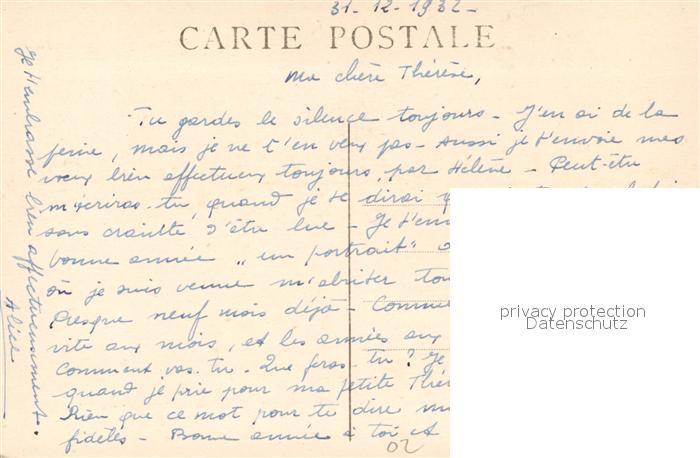 31-12-1932-
CARTE POSTALE
Ma chère Thérèse,
Tu gardes le silence toujours - J'en ai de la
peine, mais je ne t'en veux pas - Aussi je t'envoie mes
voeux bien affectueux toujours, par Hélène - Peut-être
m'écriras-tu, quand je te dirai
sans crainte d'être lue - Je t'en
bonne année "un portrait"
où je suis venue m'abriter tou
Presque neuf mois déjà - Comme
vite aux mois, et les années aux
Comment vas-tu - Que feras-tu ? Je
quand je prie pour ma petite Thér
Rien que ce mot pour te dire
fidèles - Bonne année à toi et
02
Je t'embrasse bien affectueusement.
Alice
privacy protection
Datenschutz